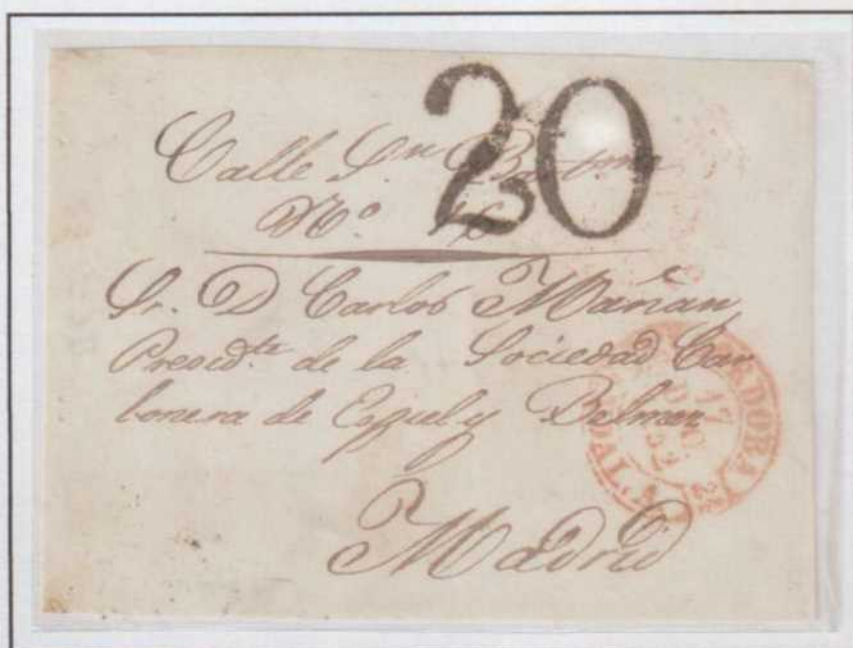 20
Calle Sn
No.
Sr. D Carlos Mañan
Presidte de la Sociedad Car
bonera de Espiel y Belmez
Madrid
17
DIC.